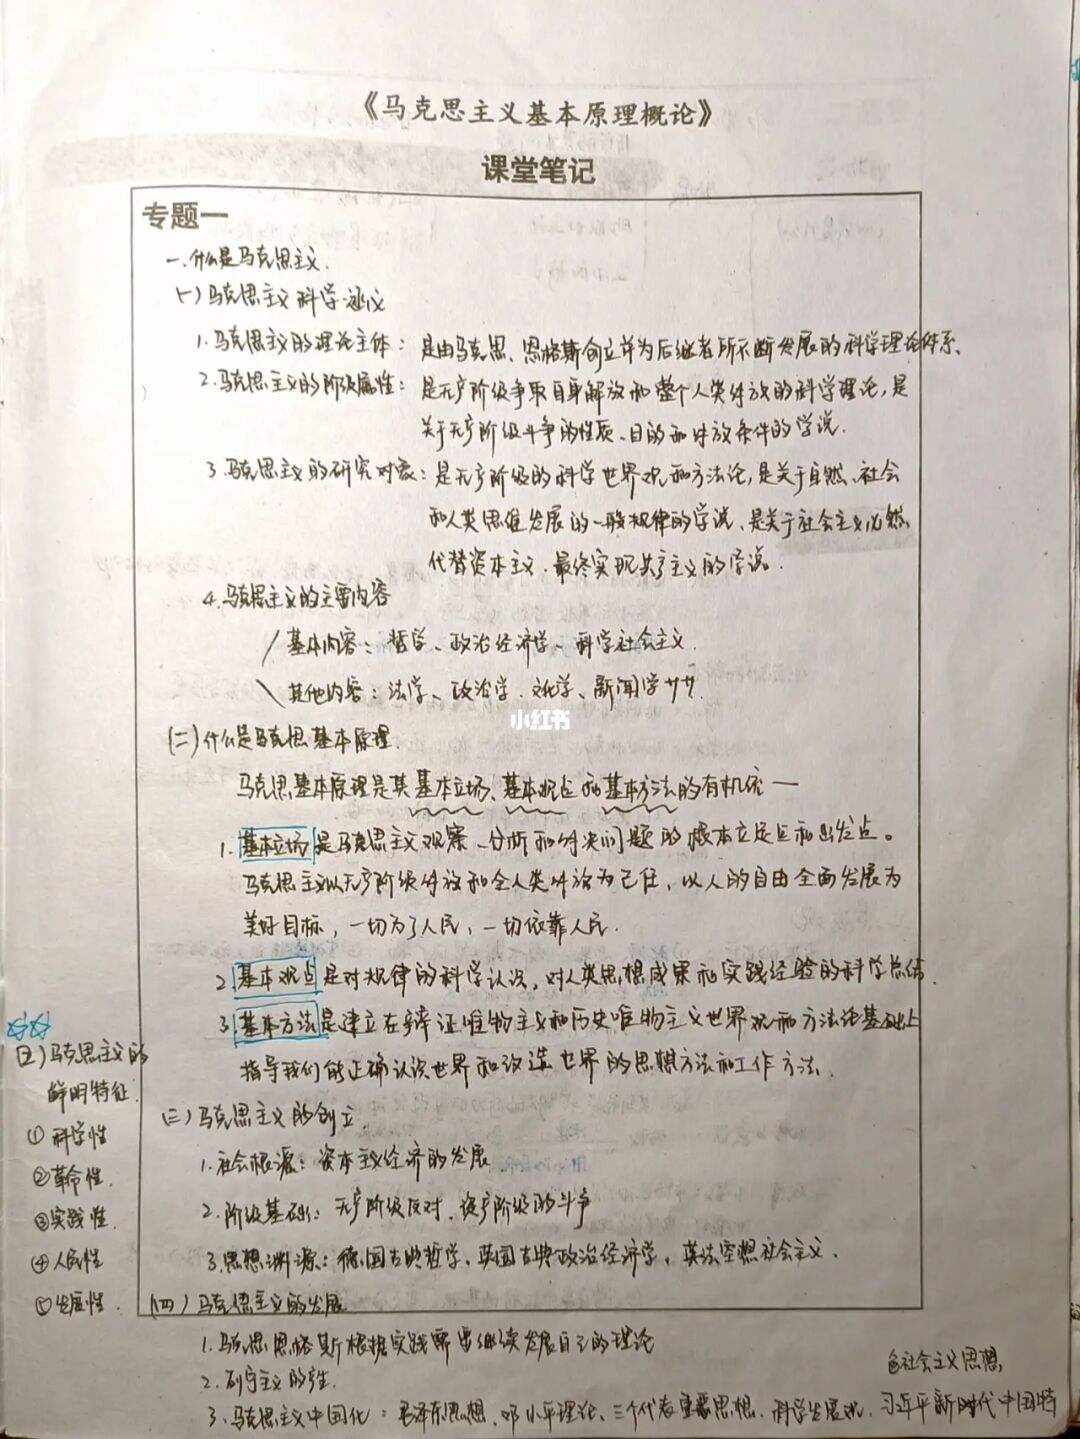 《马克思主义基本原理概论》
课堂笔记
专题一
一.什么是马克思主义.
(一)马克思主义科学涵义
1.马克思主义的理论主体：是由马克思、恩格斯创立并为后继者所不断发展的科学理论体系、
2.马克思主义的阶级属性：是无产阶级争取自身解放和整个人类解放的科学理论,是
关于无产阶级斗争的性质、目的和解放条件的学说.
3.马克思主义的研究对象：是无产阶级的科学世界观和方法论,是关于自然、社会
和人类思维发展的一般规律的学说、是关于社会主义必然
代替资本主义.最终实现共产主义的学说.
4.马克思主义的主要内容
基本内容：哲学、政治经济学、科学社会主义.
其他内容：法学、政治学.文化学、新闻学
小红书
(二)什么是马克思基本原理.
马克思基本原理是其基本立场、基本观点和基本方法的有机统一
1.基本立场是马克思主义观察、分析和解决问题的根本立足点和出发点。
马克思主义以无产阶级解放和全人类解放为己任,以人的自由全面发展为
美好目标,一切为了人民,一切依靠人民.
2基本观点是对规律的科学认识,对人类思想成果和实践经验的科学总结.
3.基本方法是建立在辩证唯物主义和历史唯物主义世界观和方法论基础上
指导我们能正确认识世界和改造世界的思想方法和工作方法.
(三)马克思主义的创立.
1.社会根源：资本主义经济的发展
2.阶级基础：无产阶级反对.资产阶级的斗争
3.思想渊源：德国古典哲学、英国古典政治经济学,英法空想社会主义.
(四)马克思主义的发展
1.马克思恩格斯根据实践需要继续发展自己的理论
2.列宁主义的产生.
3.马克思主义中国化：毛泽东思想、邓小平理论、三个代表重要思想.科学发展观.习近平新时代中国特
色社会主义思想
(五)马克思主义的
鲜明特征.
①科学性
②革命性.
③实践性.
④人民性
⑤发展性.